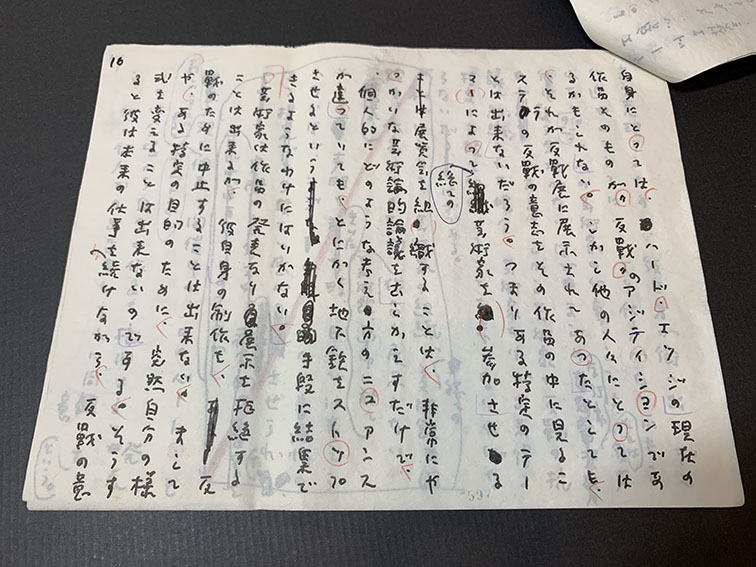 16
自身にとっては、ハード・エッジの現在の
作品そのものが、反戦のアジテイションであ
るかもしれない。しかし他の人々にとっては
、それが反戦展に展示されてあったとしても、
ステラの反戦の意志をその作品の中に見るこ
とは出来ないだろう。つまりある特定のテー
マーによって芸術家を参加させる
総ての
また展覧会を組織することは、非常にや
っかいな芸術論的論議をむしかえすだけで、
個人的にどのような考え方のニュアンス
が違っていても、とにかく地下鉄をストップ
させるという手段に結集で
きるようなわけにはいかない。
芸術家は作品の発表なり展示を拒絶する
ことは出来るが、彼自身の制作を、反
戦のために中止することは出来ない。まして
や、ある特定の目的のために、突然自分の様
式を変えることは出来ないのである。そうす
ると彼は未来の仕事を続けながら、反戦の意
597